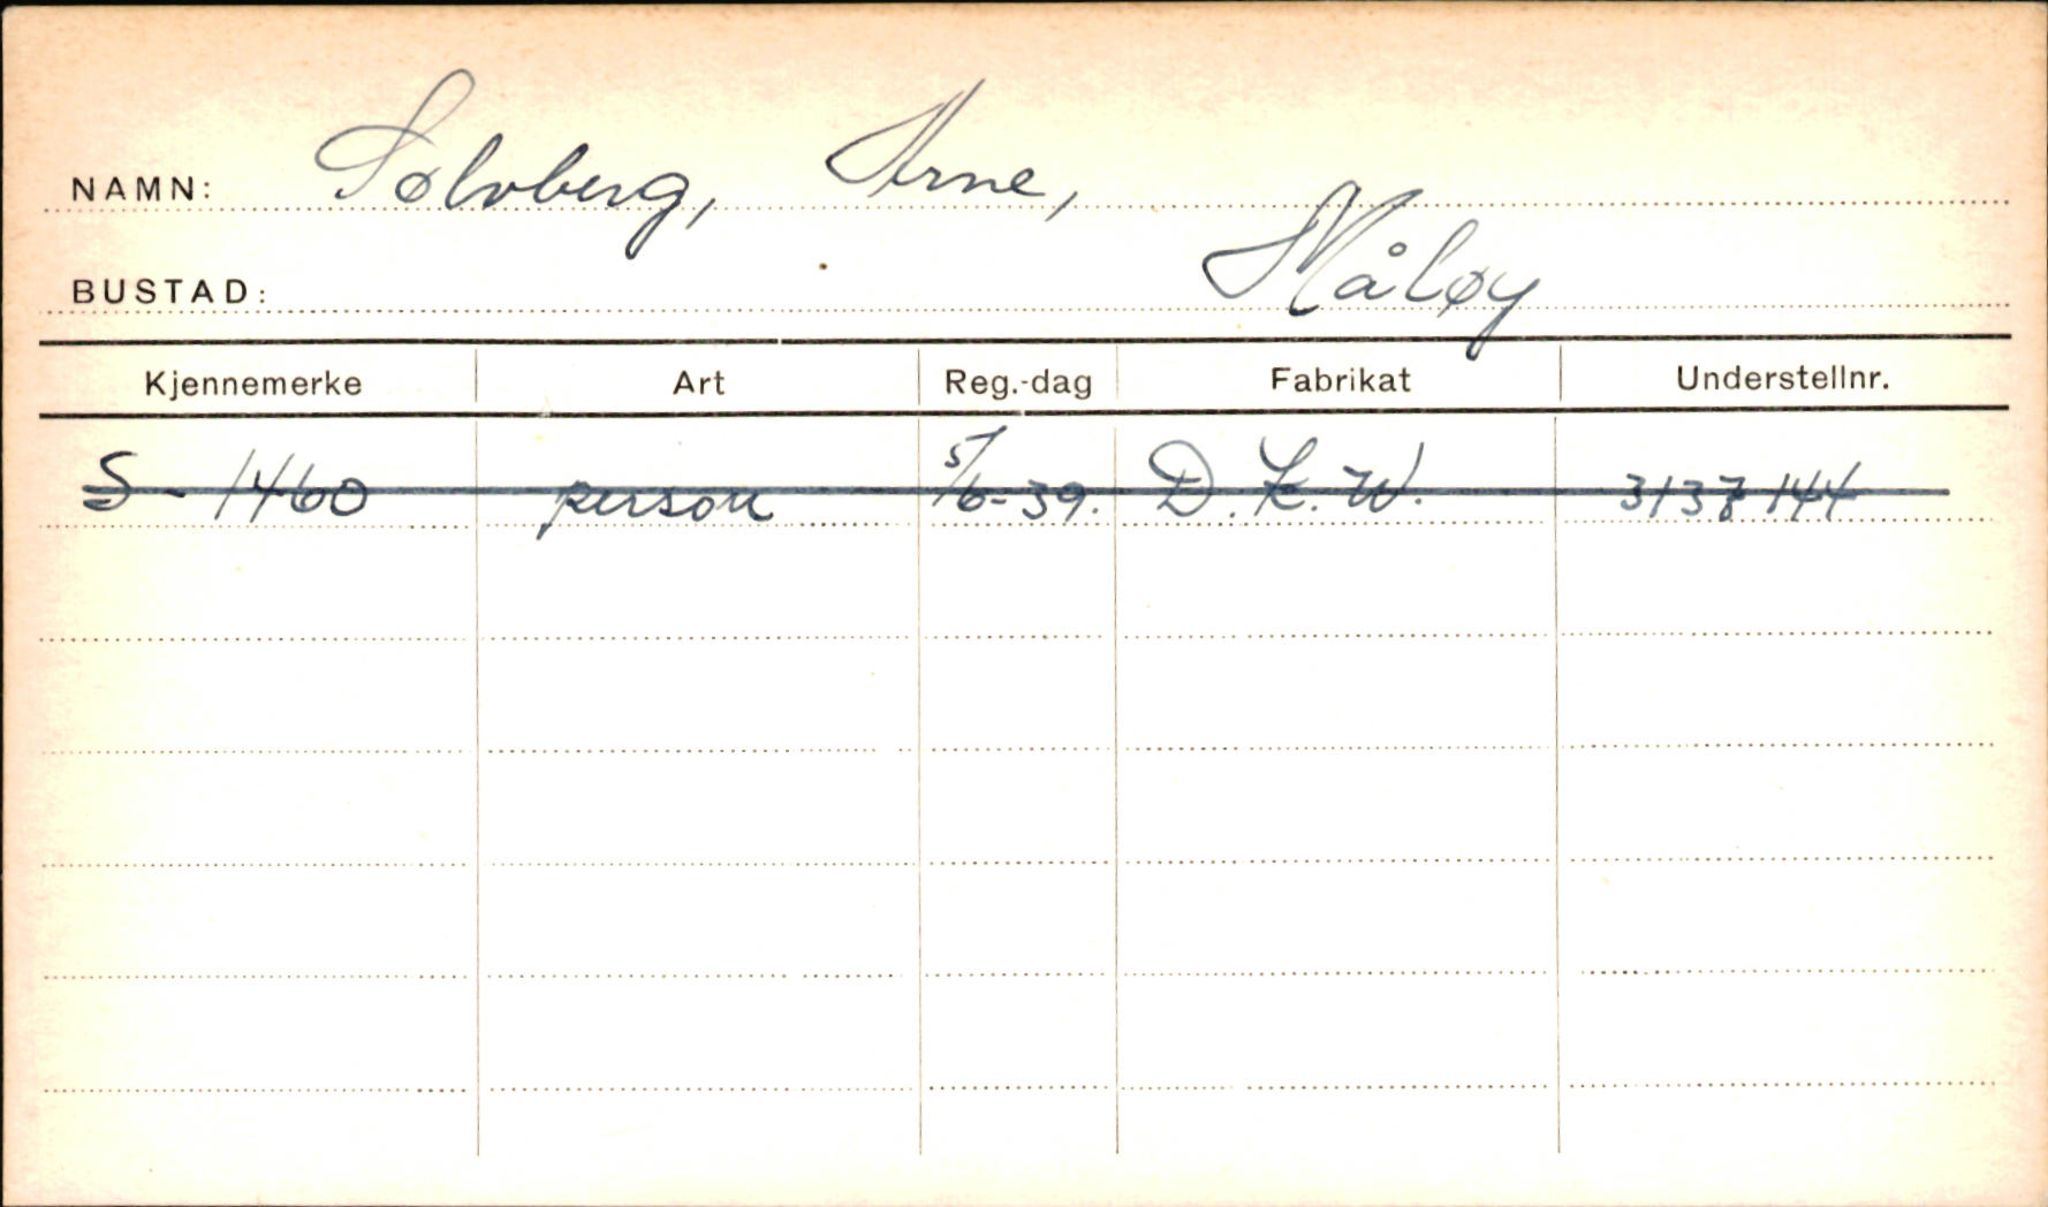 NAMN: Sølvberg, Arne,
BUSTAD: Måløy
Kjennemerke Art Reg.-dag Fabrikat Understellnr.
S - 1460 person 5/6-39. D.K.W. 3137144